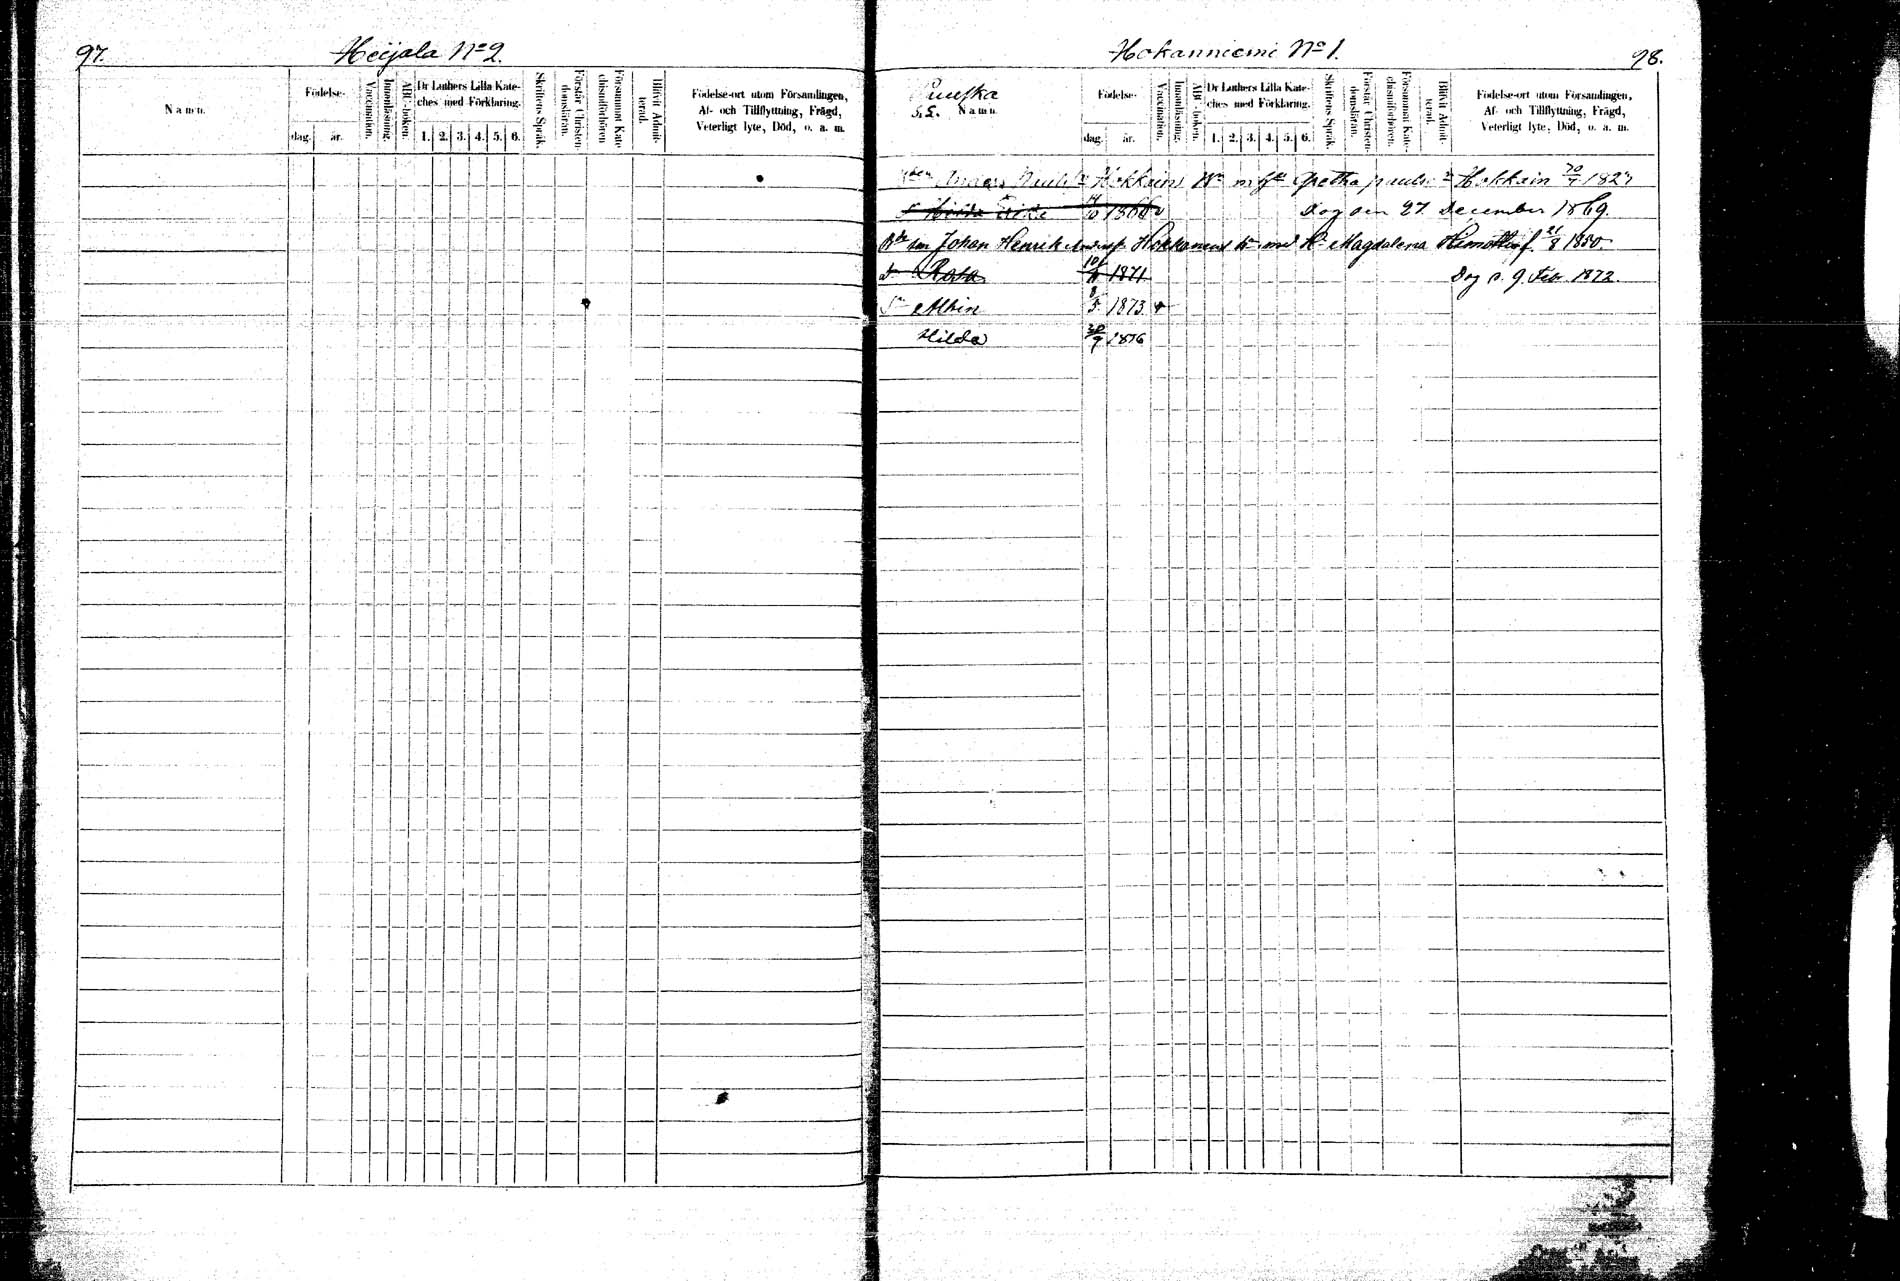 97.
Heijala No 2.
Namn.
Födelse-
dag.
år.
Vaccination.
Innanläsning.
ABC-boken.
Dr Luthers Lilla Kate-
ches med Förklaring.
1. 2. 3. 4. 5. 6.
Skriftens Språk.
Förstår Christen-
domsläran.
Försummat Kate
chismiförhören
Blivit Admit-
terad.
Födelse-ort utom Församlingen,
Af- och Tillflyttning, Frägd,
Veterligt lyte, Död, o. a. m.
Hokanniemi No 1.
98.
Namn.
Födelse-
dag.
år.
Vaccination.
Innanläsning.
ABC-boken.
Dr Luthers Lilla Kate-
ches med Förklaring.
1. 2. 3. 4. 5. 6.
Skriftens Språk.
Förstår Christen-
domsläran.
Försummat Kate-
chismiförhören.
Blivit Admit-
terad.
Födelse-ort utom Församlingen,
Af- och Tillflyttning, Frägd,
Veterligt lyte, Död, o. a. m.
Anders Hokkain Gretha Hokkain 1827
1868 Dog den 27 December 1869.
Johan Henrik Hokkanens med Magdalena 21/8 1850.
Rosa 1871 Dog d. 9 Feb. 1872.
Albin 8/5 1873
Hilda 20/9 1876